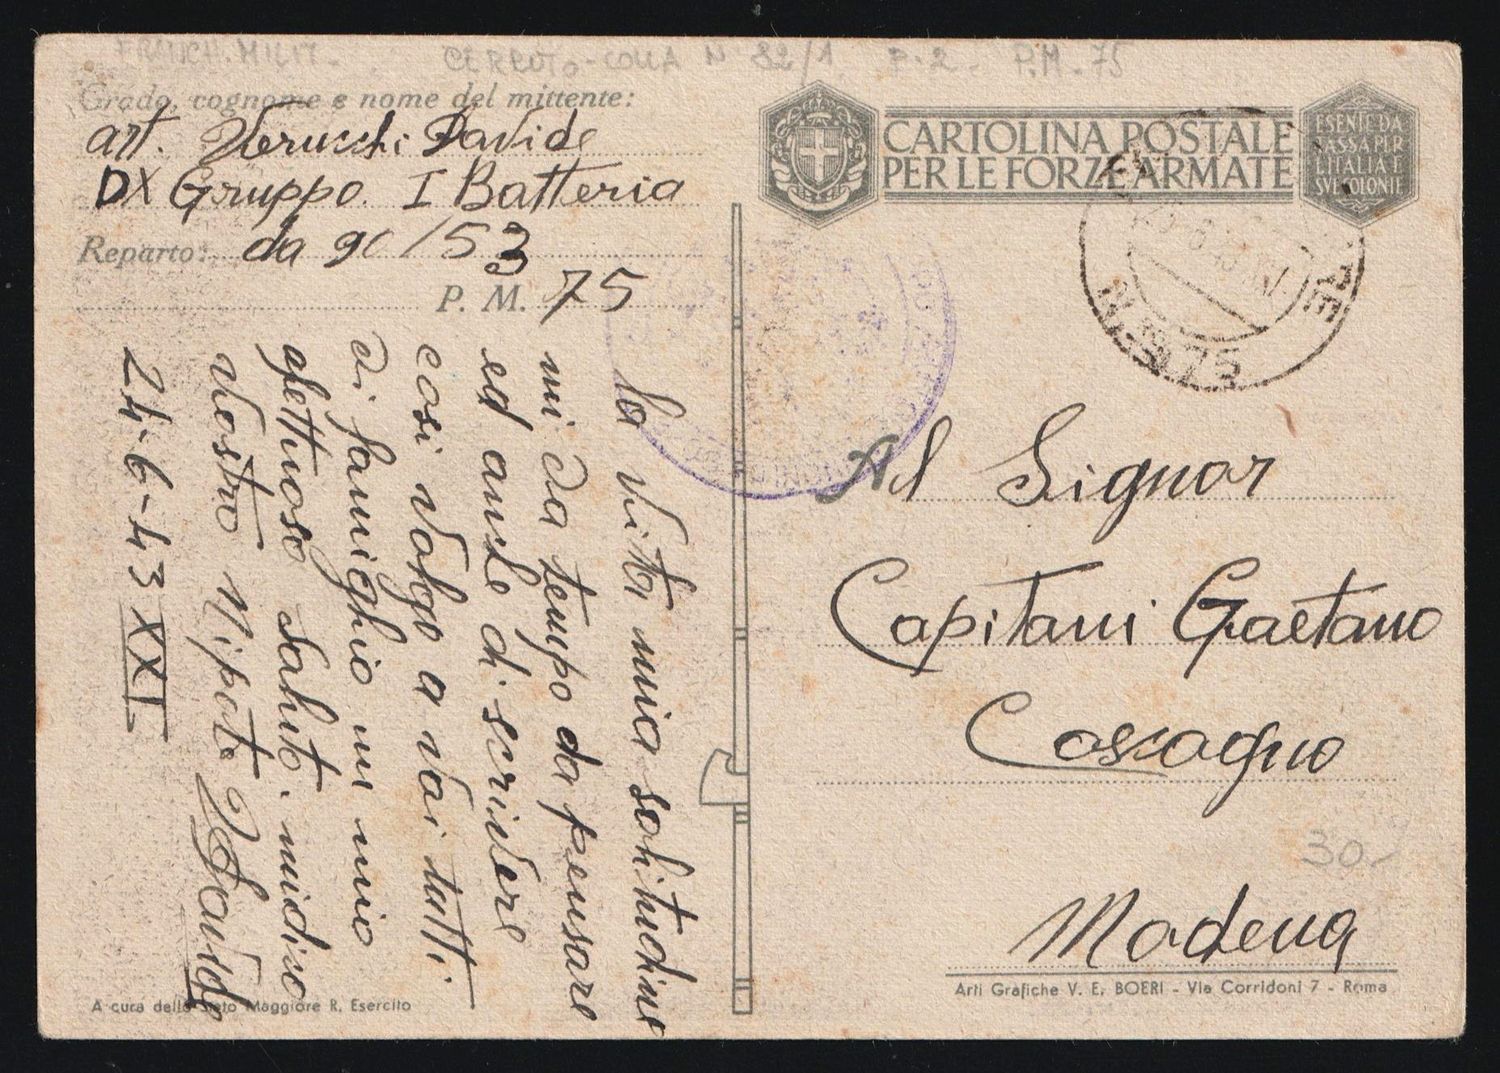 FRANCH. MILIT.
CERRUTO-COLLA N 82/1 P.2 P.M. 75
Grado, cognome e nome del mittente:
art. Verucchi Davide
DX Gruppo. I Batteria
Reparto: da 90/53
P. M. 75
CARTOLINA POSTALE
PER LE FORZE ARMATE
ESENTE DA
TASSA PER
L'ITALIA E
SUE COLONIE
N. 75
la vita mia solitudine
mi da tempo da pensare
ed anche di scrivere
cosi volgo a voi tutti
di famiglia un mio
affettuoso saluto. midiso
vostro Nipote Davide
24-6-43 XXI
Al Signor
Capitani Gaetano
Cossogno
Modena
30.-
A cura dello Stato Maggiore R. Esercito
Arti Grafiche V. E. BOERI - Via Corridoni 7 - Roma